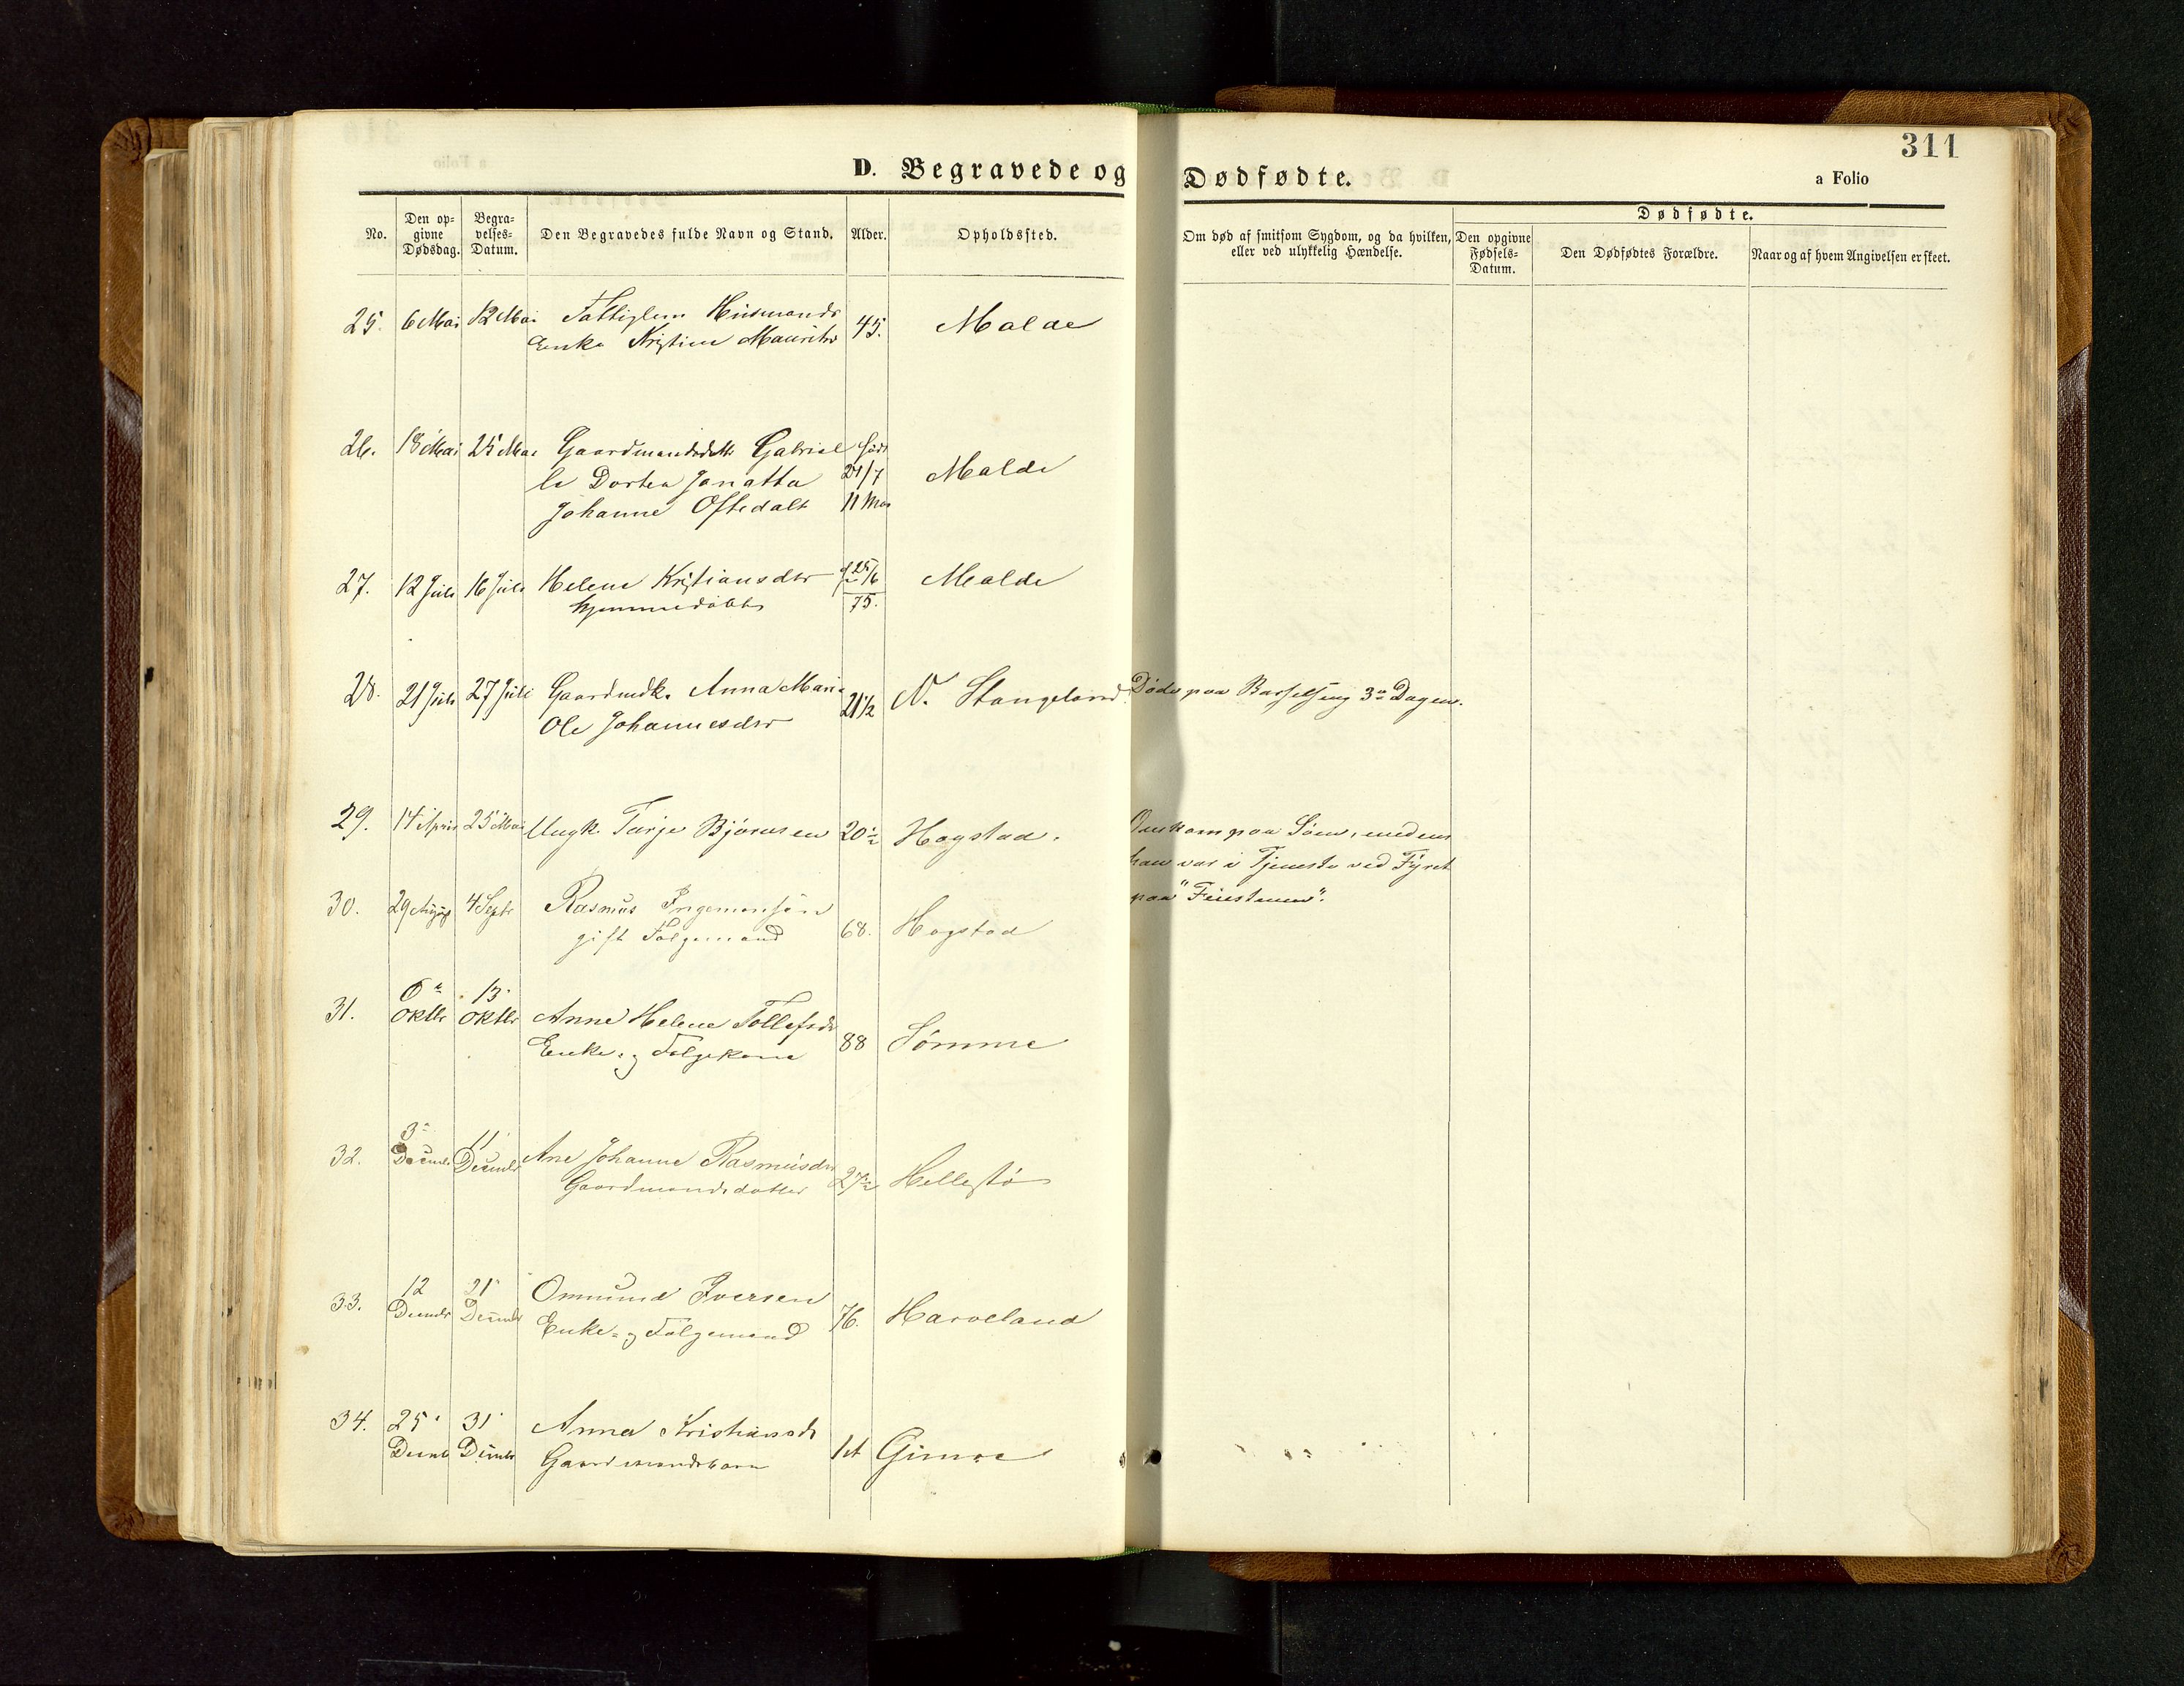 311
D. Begravede og Dødfødte.
a Folio
No.
Den op-
givne
Dødsdag.
Begra-
velses-
Datum.
Den Begravedes fulde Navn og Stand.
Alder.
Opholdssted.
Om død af smitsom Sygdom, og da hvilken,
eller ved ulykkelig Hændelse.
Dødfødte.
Den opgivne
Fødsels-
Datum.
Den Dødfødtes Forældre.
Naar og af hvem Angivelsen er skeet.
25. 6 Mai 12 Mai Fattiglem Husmands 45. Malde
Enke Kristine Mauritsd
26. 18 Mai 25 Mai Gaardmandsdatt Gabriel født
le Dortea Janatta 21/7 Malde
Johanne Oftedalt 11 Mdr
27. 12 Juli 16 Juli Helene Kristiansdtr f. 25/6 Malde
hjemmedøbt 75.
28. 21 Juli 27 Juli Gaardmdk. Anna Marie 21½ N. Stangeland Døde paa Barselseng 3die Dagen.
Ole Johannesdtr
29. 14 April 25 Mai Ungk. Tarje Bjørnsen 20½ Hogstad. Omkom paa Søen, medens
han var i Tjeneste ved Fyret
paa "Feiesteinen".
30. 29 Augus 4 Septr Rasmus Ingemonsøn 68. Hogstad
gift Følgemand
31. 6te Oktbr 13. Oktbr Anne Helene Tollefsdr 88 Sømme
Enke- og Følgekone
32. 3. Decmbr 11. Decmbr Ane Johanne Rasmusdr 27½ Hellestø
Gaardmandsdatter
33. 12 Decmbr 21. Decmbr Ommund Iversen 76. Harveland
Enke- og Følgemand
34. 25. Decmb 31. Decmbr Anna Kristiansdr Gimre
Gaardmandsbarn